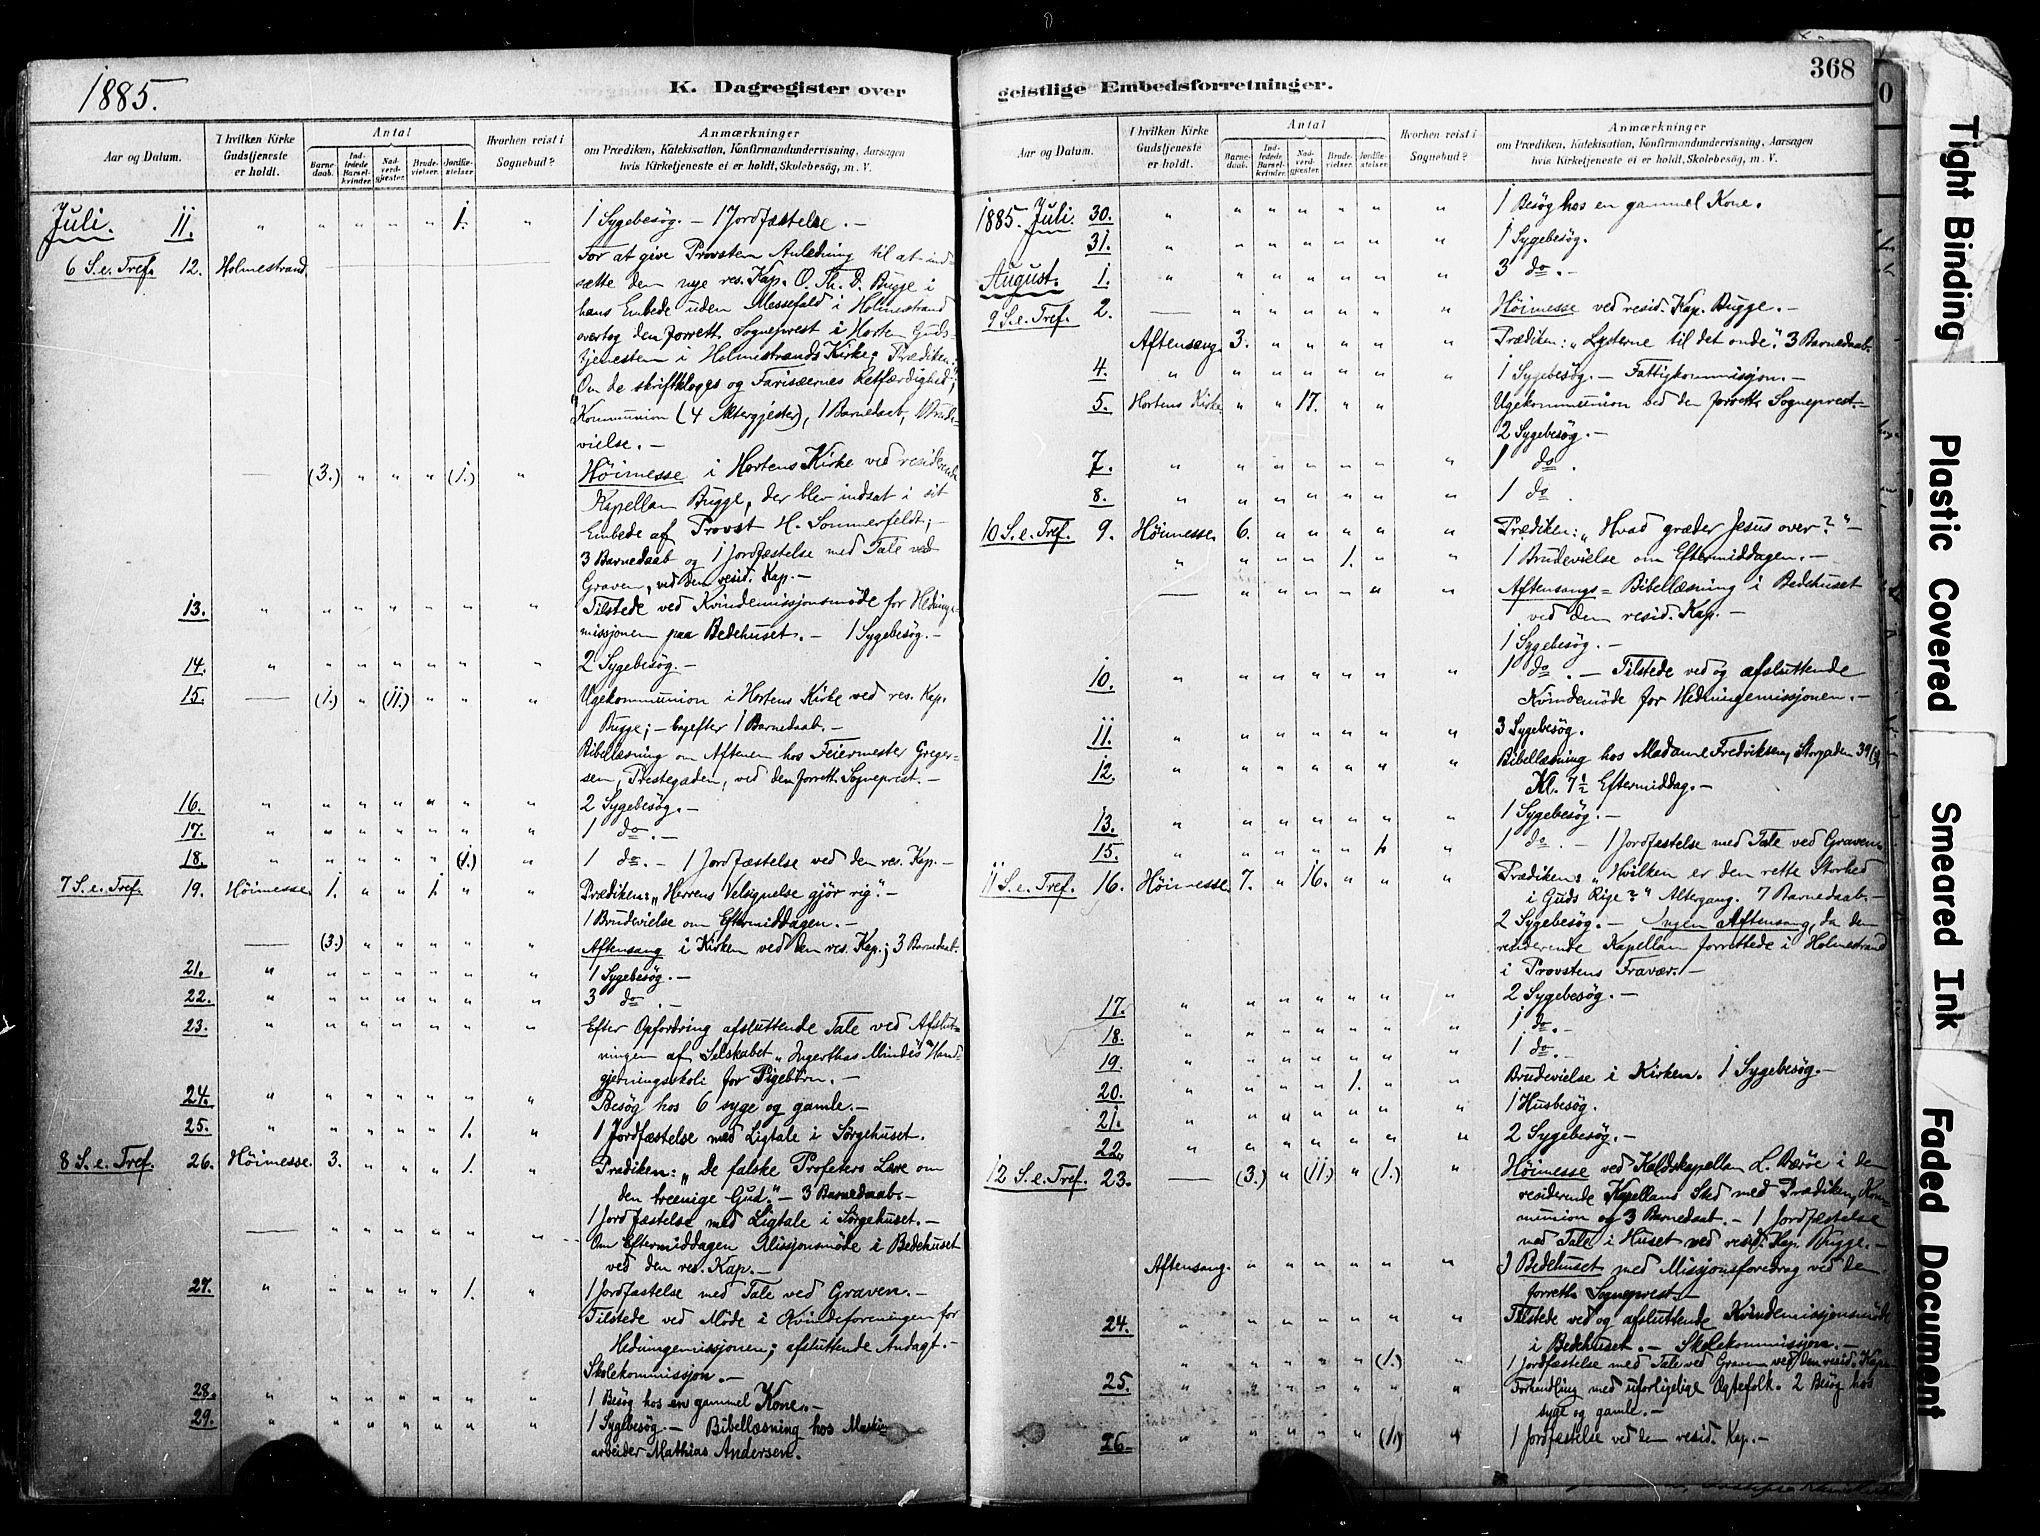 1885.
K. Dagregister over
Aar og Datum.
I hvilken Kirke Gudstjeneste er holdt.
Antal
Barnedaab.
Indledede Barselkvinder.
Nadverdgjester.
Brudevielser.
Jordfæstelser.
Hvorhen reist i Sognebud?
Anmærkninger
om Prædiken, Katekisation, Konfirmandundervisning, Aarsagen
hvis Kirketjeneste ei er holdt, Skolebesög, m. V.
Juli. 11. " " " " " 1. 1 Sygebesøg. – 1 Jordfæstelse. –
6 S. e. Tref. 12. Holmestrand. For at give Provsten Anledning til at ind-
sætte den nye res. Kap. O. Th. D. Bugge i
hans Embede uden Messefald i Holmestrand
overtog den forrett. Sogneprest i Horten Guds-
tjenesten i Holmestrands Kirke; Prædiken:
"Om de skriftkloges og Farisæernes Retfærdighed;"
Kommunion (4 Altergjester), 1 Barnedaab, 1 Brude-
vielse. –
— (3.) " " " (1.) " Høimesse i Hortens Kirke ved residerende
Kapellan Bugge, der blev indsat i sit
Embede af Provst H. Sommerfeldt; –
3 Barnedaab og 1 Jordfæstelse med Tale ved
Graven, ved den resid. Kap. –
13. " " " " " " " Tilstede ved Kvindemissjonsmøde for Hedninge-
missjonen paa Bedehuset. – 1 Sygebesøg. –
14. " " " " " " " 2 Sygebesøg. –
15. — (1.) " (11.) " " " Ugekommunion i Hortens Kirke ved res. Kap.
Bugge; – bagefter 1 Barnedaab. –
Bibellæsning om Aftenen hos Feiermester Greger-
sen, Prestegaden, ved den forrett. Sogneprest. –
16. " " " " " " " 2 Sygebesøg. –
17. " " " " " " " 1 do. –
18. " " " " " (1.) " 1 do. – 1 Jordfæstelse ved den res. Kap. –
7 S. e. Tref. 19. Høimesse. 1. " " 1. " " Prædiken: „Herrens Velsignelse gjør rig". –
1 Brudevielse om Eftermiddagen. –
— (3.) " " " " " Aftensang i Kirken ved den res. Kap.; 3 Barnedaab.
21. " " " " " " " 1 Sygebesøg. –
22. " " " " " " " 3 do. –
23. " " " " " " " Efter Opfordring afsluttende Tale ved Afslut-
ningen af Selskabet „Ingerthas Mindes" Haand-
gjerningsskole for Pigebørn. –
24. " " " " " " " Besøg hos 6 syge og gamle. –
25. " " " " " 1. " 1 Jordfæstelse med Ligtale i Sørgehuset.
8 S. e. Tref. 26. Høimesse. 3. " " " 1. " Prædiken: „De falske Profeters Lære om
den treenige Gud." – 3 Barnedaab. –
1 Jordfæstelse med Ligtale i Sørgehuset. –
— " " " " " " Om Eftermiddagen Missjonsmøde i Bedehuset
ved den res. Kap. –
27. " " " " " 1. " 1 Jordfæstelse med Tale ved Graven. –
Tilstede ved Møde i Kvindeforeningen for
Hedningemissjonen; afsluttende Andagt. –
Skolekommissjon. –
28. " " " " " " " 1 Besøg hos en gammel Kone. –
29. " " " " " " " 1 Sygebesøg. – Bibellæsning hos Maskin-
arbeider Mathias Andersen.
368
geistlige Embedsforretninger.
Aar og Datum.
I hvilken Kirke Gudstjeneste er holdt.
Antal
Barnedaab.
Indledede Barselkvinder.
Nadverdgjester.
Brudevielser.
Jordfæstelser.
Hvorhen reist i Sognebud?
Anmærkninger
om Prædiken, Katekisation, Konfirmandundervisning, Aarsagen
hvis Kirketjeneste ei er holdt, Skolebesög, m. V.
1885. Juli. 30. " " " " " " " 1 Besøg hos en gammel Kone.
31. " " " " " " " 1 Sygebesøg.
August. 1. " " " " " " " 3 do. –
9 S. e. Tref. 2. — " " " " " " Høimesse ved resid. Kap. Bugge. –
Aftensang 3. " " " " " Prædiken: „Lysterne til det onde". 3 Barnedaab.
4. " " " " " " " 1 Sygebesøg. – Fattigkommissjon. –
5. Hortens Kirke " " 17. " " Ugekommunion ved den forrett. Sogneprest. –
2 Sygebesøg. –
7. " " " " " " " 1 do.
8. " " " " " " " 1 do.
10 S. e. Tref. 9. Høimesse. 6. " " " " " Prædiken: „Hvad græder Jesus over?" –
" " " " 1. " " 1 Brudevielse om Eftermiddagen. –
— " " " " " " Aftensangs= Bibellæsning i Bedehuset
ved den resid. Kap. –
1 Sygebesøg. –
10. " " " " " " " 1 do. – Tilstede ved og afsluttende
Kvindemøde for Hedningemissjonen. –
11. " " " " " " " 3 Sygebesøg.
12. " " " " " " " Bibellæsning hos Madame Fredriksen, Storgaden 39
Kl. 7 1/2 Eftermiddag. –
13. " " " " " " " 1 Sygebesøg. –
15. " " " " " 1. " 1 do. – 1 Jordfæstelse med Tale ved Graven.
11 S. e. Tref. 16. Høimesse. 7. " 16. " " " Prædiken: „Hvilken er den rette Storhed
i Guds Rige?" Altergang. 7 Barnedaab. –
2 Sygebesøg. – Ingen Aftensang, da den
residerende Kapellan forrettede i Holmestrand
i Provstens Fravær. –
17. " " " " " " " 2 Sygebesøg. –
18. " " " " " " " 1 do. –
19. " " " " " " " 1 do. –
20. " " " " 1. " " Brudevielse i Kirken. 1 Sygebesøg. –
21. " " " " " " " 1 Husbesøg.
22. " " " " " " " 2 Sygebesøg. –
12 S. e. Tref. 23. — (3.) " (11.) " (1.) " Høimesse ved Kaldskapellan L. Bærøe i den
residerende Kapellans Sted med Prædiken, Kom-
munion og 3 Barnedaab. – 1 Jordfæstelse
med Tale i Huset ved resid. Kap. Bugge. –
Aftensang. " " " " " " I Bedehuset med Missjonsforedrag ved den
forrett. Sogneprest. –
24. " " " " " " " Tilstede ved og afsluttende Kvindemissjonsmøde
i Bedehuset. – Skolekommissjon. –
" " " " " (1.) " 1 Jordfæstelse med Tale ved Graven ved den resid. Kap. –
25. " " " " " " " Forhandling med uforligelige Ægtefolk. 2 Besøg hos
syge og gamle. –
26. " " " " " (1.) " 1 Jordfæstelse ved den resid. Kap. –
Tight Binding
Plastic Covered
Smeared Ink
Faded Document